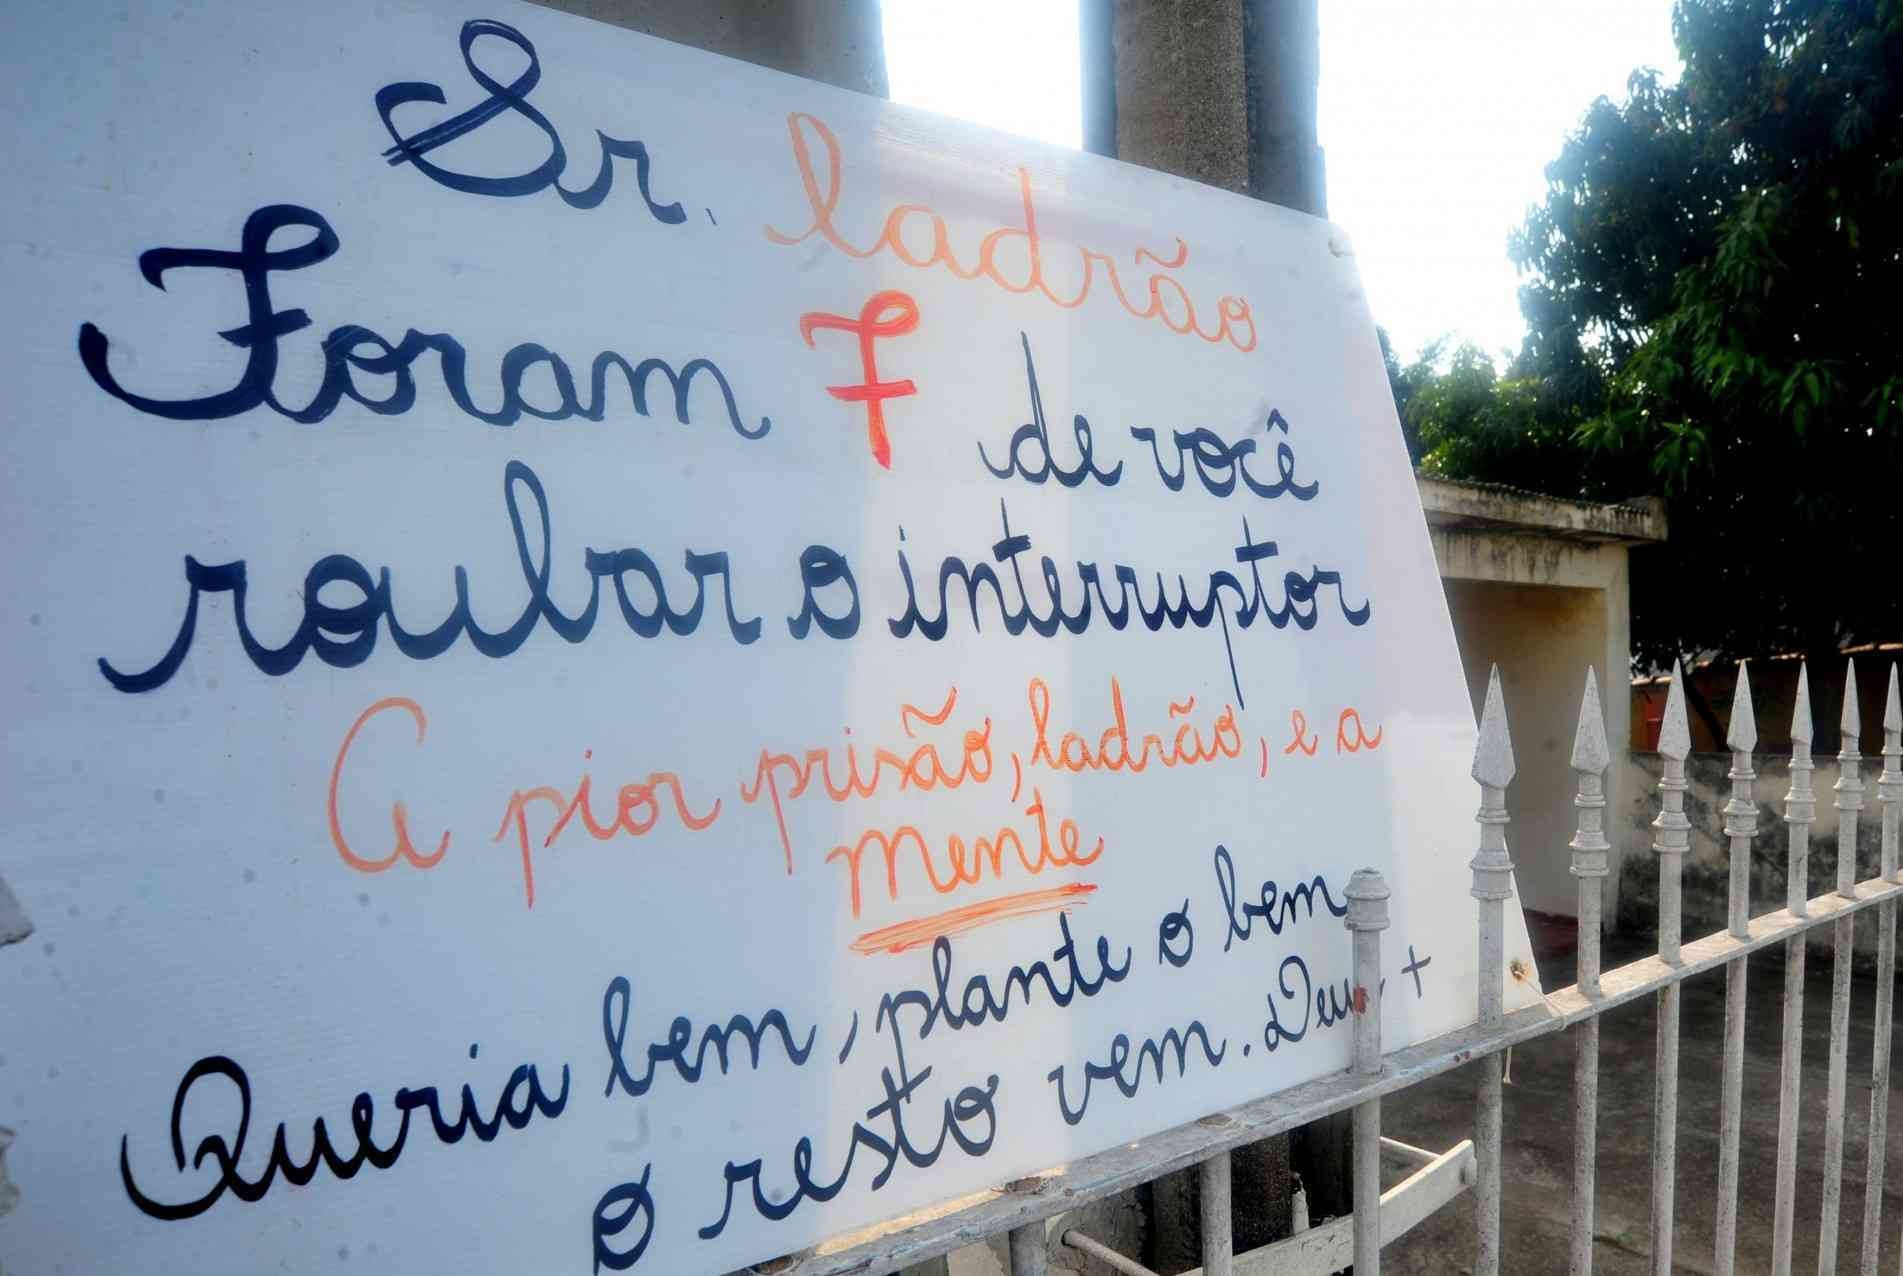 Sr. ladrão
Foram 7 de você
roubar o interruptor
A pior prisão, ladrão, e a
mente
Queria bem, plante o bem
o resto vem. Deus +